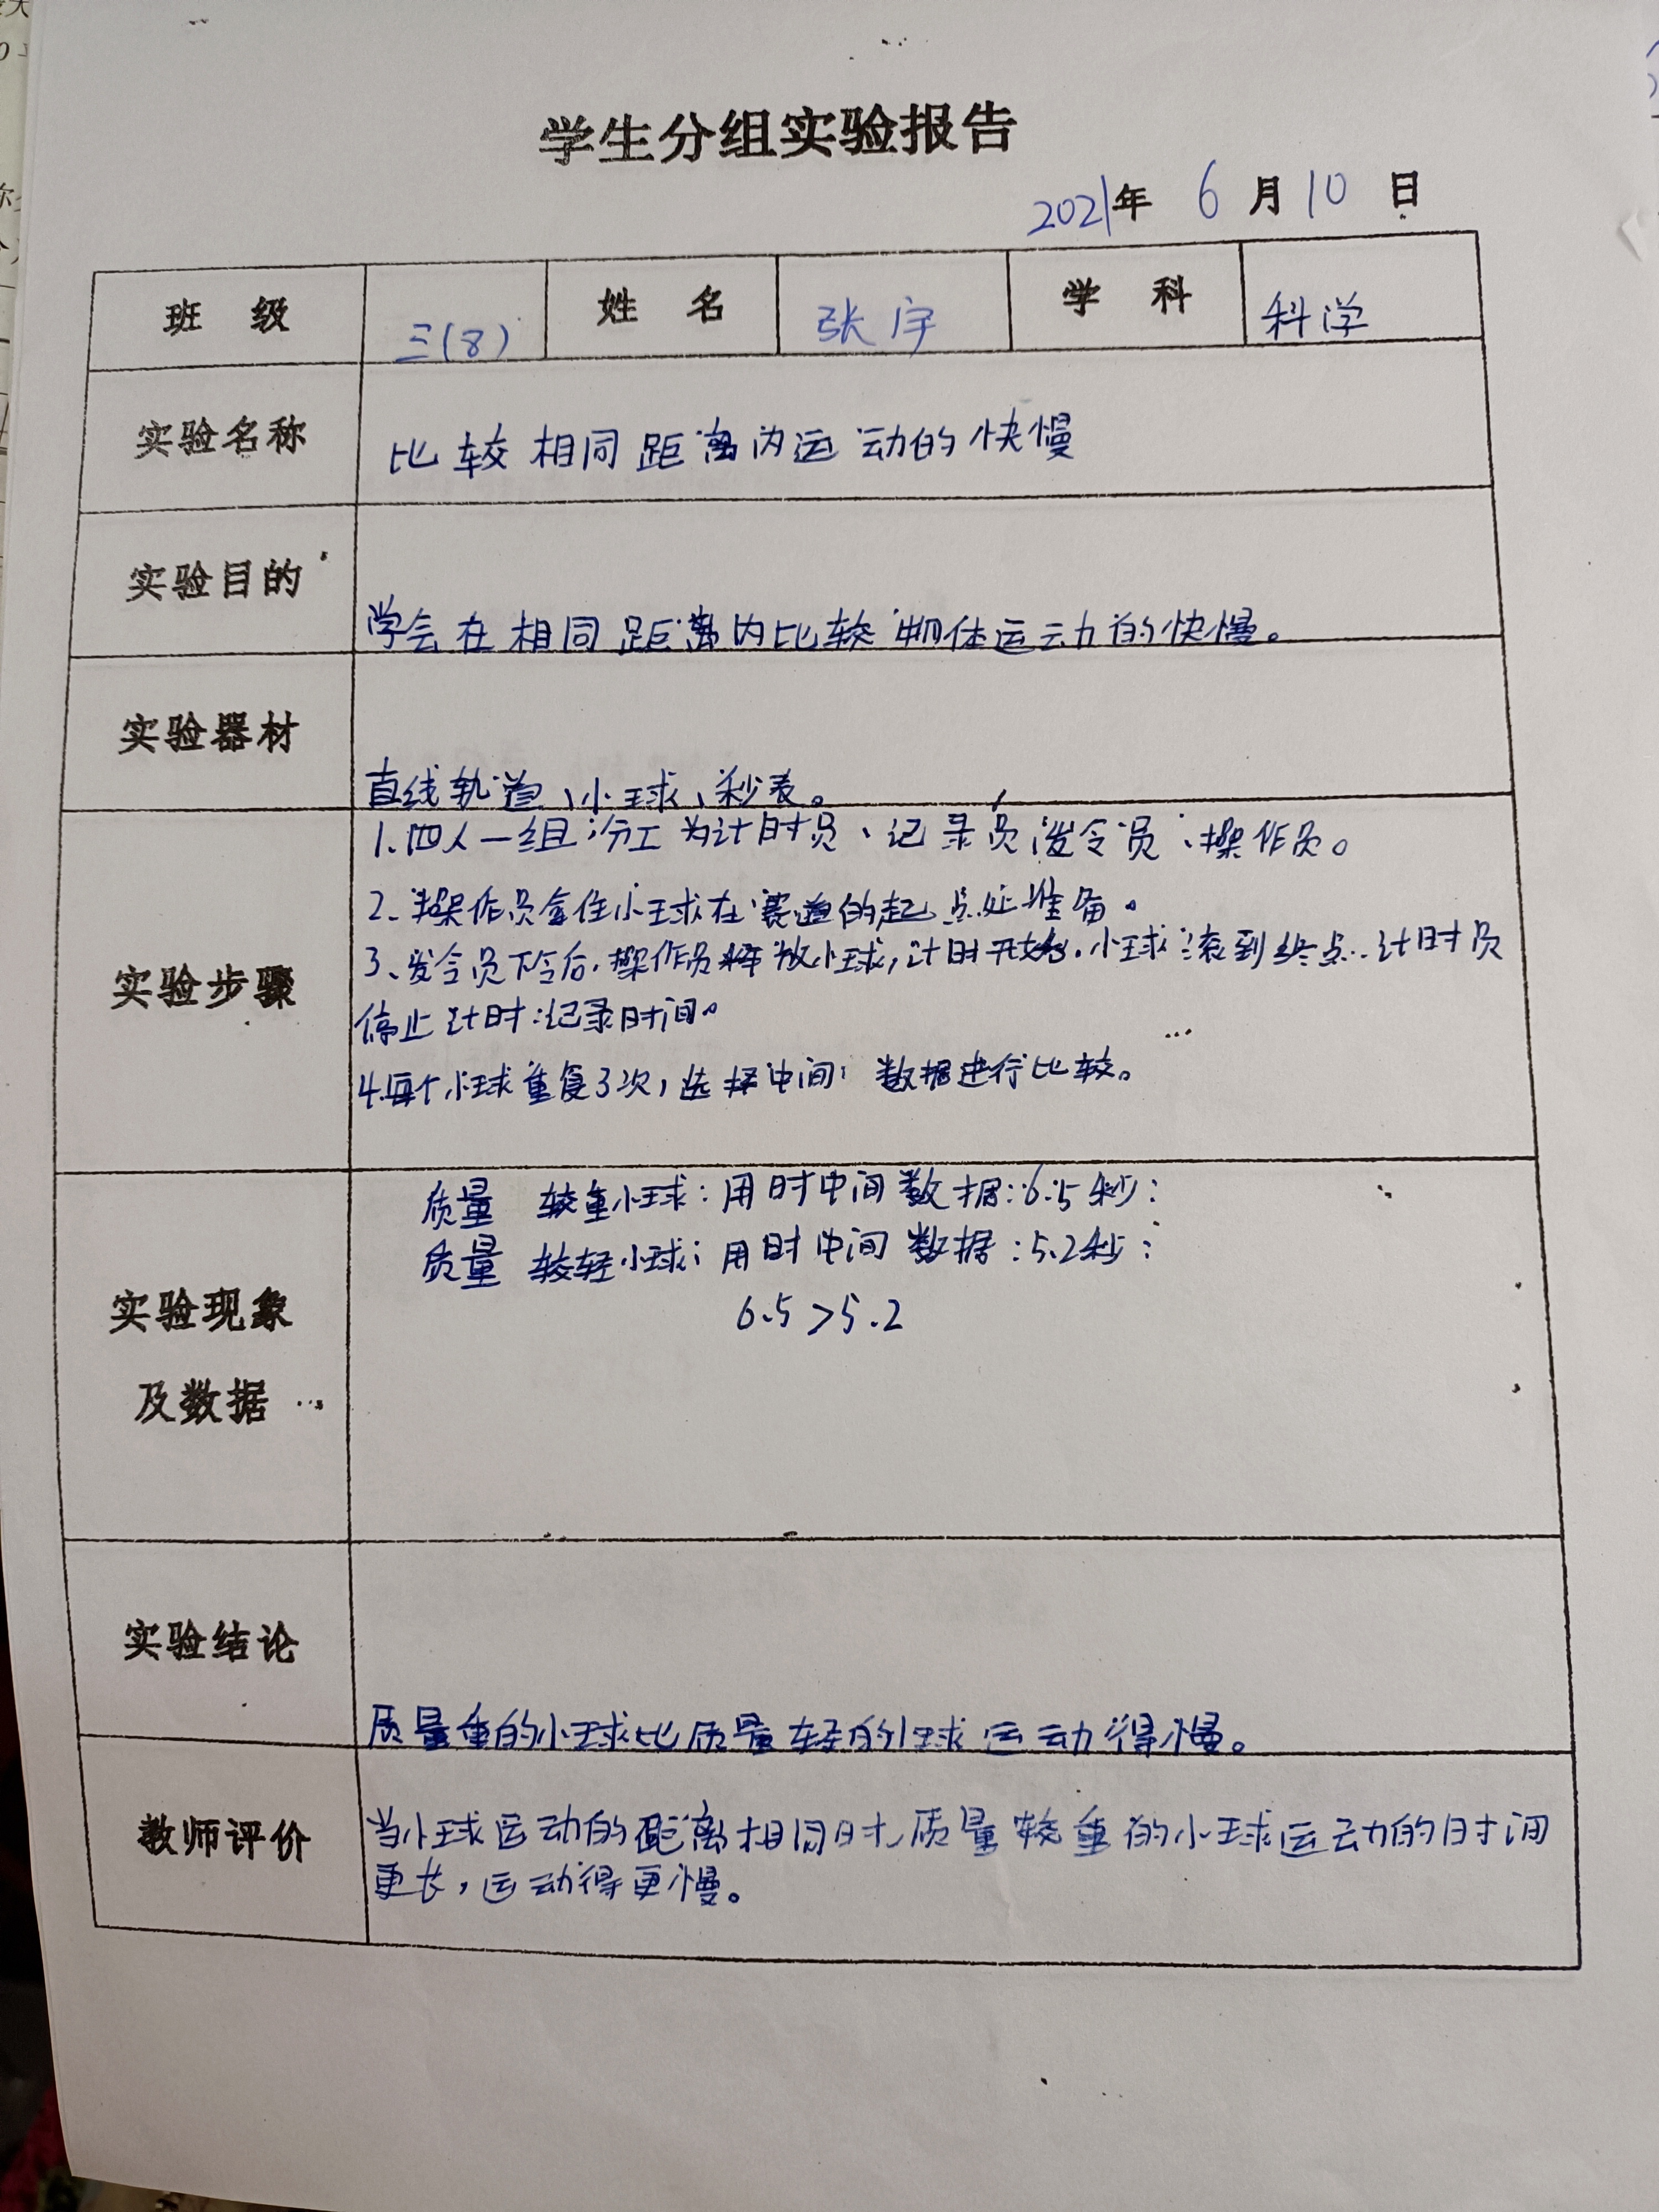 学生分组实验报告
2021年 6 月 10 日
班 级 三(8) 姓 名 张宇 学 科 科学
实验名称 比较相同距离内运动的快慢
实验目的 学会在相同距离内比较物体运动的快慢。
实验器材 直线轨道、小球、秒表。
实验步骤
1.四人一组分工为计时员、记录员、发令员、操作员。
2、操作员拿住小球在赛道的起点处准备。
3、发令员下令后,操作员释放小球,计时开始,小球滚到终点.计时员
停止计时:记录时间。
4.每个小球重复3次,选择中间数据进行比较。
实验现象
及数据
质量 较重小球:用时中间数据:6.5秒;
质量 较轻小球:用时中间数据:5.2秒;
6.5>5.2
实验结论 质量重的小球比质量轻的小球运动得慢。
教师评价 当小球运动的距离相同时,质量较重的小球运动的时间
更长,运动得更慢。